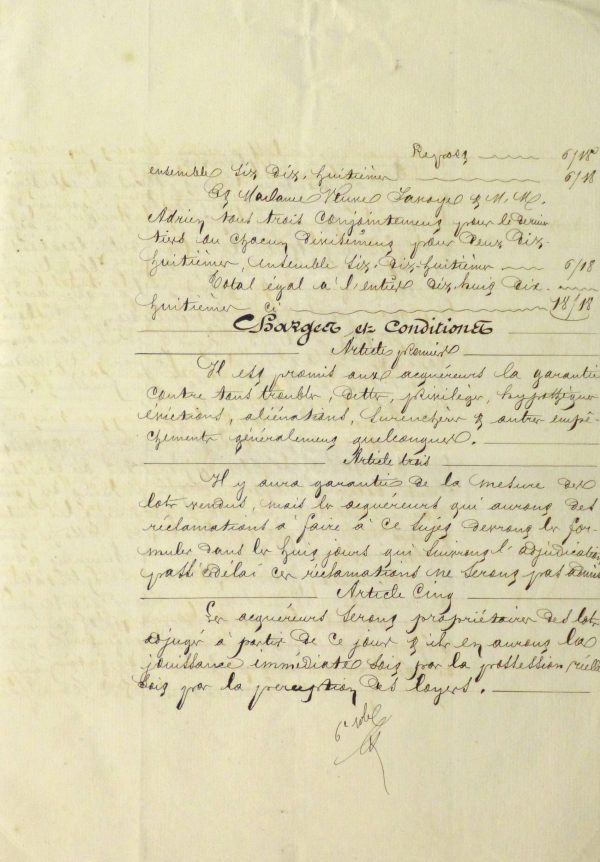 Report 6/18e
ensemble six dix-huitièmes 6/18
Et Madame Veuve Lanoye & M.M.
Adrien tous trois conjointement pour le dernier
tiers ou chacun divisément pour deux dix-
huitièmes, ensemble six-dix-huitièmes 6/18
Total égal à l'entier dix huit dix-
huitièmes ci 18/18
Charges et Conditions
Article premier
Il est promis aux acquéreurs la garantie
contre tous troubles, dettes, privilèges, hypothèques
évictions, aliénations, surenchère & autres empê-
chements généralement quelconques.
Article trois
Il y aura garantie de la mesure des
lots vendus, mais les acquéreurs qui auront des
réclamations à faire à ce sujet devront les for-
muler dans les huit jours qui suivront l'adjudication
passé ce délai ces réclamations ne seront pas admises
Article Cinq
Les acquéreurs seront propriétaires des lots
adjugés à partir de ce jour & ils en auront la
jouissance immédiate soit par la possession réelle
soit par la perception des loyers.
6e rôle